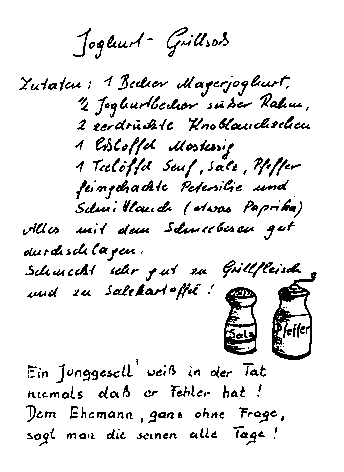 Joghurt- Grillsoß
Zutaten: 1 Becher Magerjoghurt,
½ Joghurtbecher süßer Rahm,
2 zerdrückte Knoblauchzehen
1 Eßlöffel Mostessig
1 Teelöffel Senf, Salz, Pfeffer
feingehackte Petersilie und
Schnittlauch (etwas Paprika)
Alles mit dem Schneebesen gut
durchschlagen.
Schmeckt sehr gut zu Grillfleisch
und zu Salzkartoffel!
Salz Pfeffer
Ein Junggesell' weiß in der Tat
niemals daß er Fehler hat!
Dem Ehemann, ganz ohne Frage,
sagt man die seinen alle Tage!